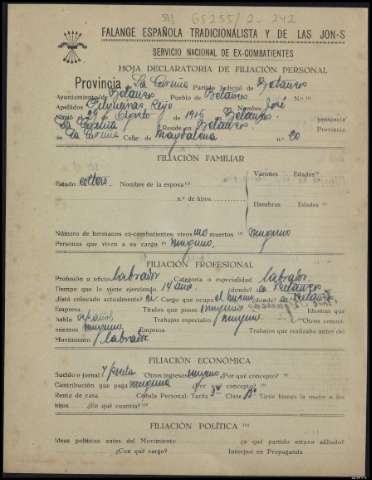 GS255/2-242
FALANGE ESPAÑOLA TRADICIONALISTA Y DE LAS JON-S
SERVICIO NACIONAL DE EX-COMBATIENTES
HOJA DECLARATORIA DE FILIACIÓN PERSONAL
Provincia La Coruña Partido Judicial de Betanzos
Ayuntamiento de Betanzos Pueblo de Betanzos N.º
Apellidos Filgueiras Rejo Nombre José
Nació el 29 de Agosto de 1915 Betanzos Provincia
La Coruña Reside en Betanzos
de La Coruña Calle de Magdalena n.º 20
FILIACIÓN FAMILIAR
Varones Edades
Estado soltero Nombre de la esposa
n.º de hijos
Hembras Edades
Número de hermanos ex-combatientes vivos no muertos ninguno
Personas que viven a su cargo ninguno
FILIACIÓN PROFESIONAL
Profesión u oficio labrador Categoría o especialidad labrador
Tiempo que lo viene ejerciendo 14 años ¿dónde? de Betanzos
¿Está colocado actualmente? Cargo que ocupa el mismo ¿dónde? de Betanzos
Empresa Títulos que posee ninguno Idiomas que
habla español Trabajos especiales ninguno Otros conoci-
mientos ninguno Empresa Trabajos que realizaba antes del
Movimiento labrador
FILIACIÓN ECONÓMICA
Sueldo o jornal 7 pesetas Otros ingresos ninguno ¿Por qué concepto?
Contribución que paga ninguna ¿Por qué concepto?
Renta de casa Cédula Personal Tarifa 3ª Clase 13ª Tiene bienes la mujer o los
hijos ¿En qué cuantía?
FILIACIÓN POLÍTICA
Ideas políticas antes del Movimiento ¿a qué partido estuvo afiliado?
¿Con qué cargo? Intervino en Propaganda